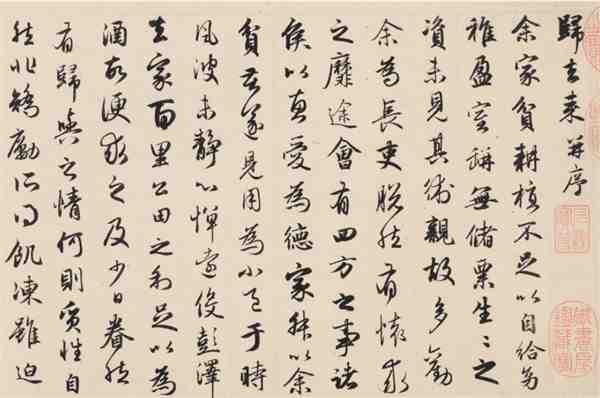 歸去来并序
余家貧耕植不足以自給幼
稚盈室缾無儲粟生〻之
資未見其術親故多勸
余為長吏脱然有懷求
之靡途會有四方之事諸
侯以惠愛為德家叔以余
貧苦遂見用為小邑于時
風波未静心憚遠役彭澤
去家百里公田之利足以為
酒故便求之及少日眷然
有歸與之情何則質性自
然非矯勵所得飢凍雖迫